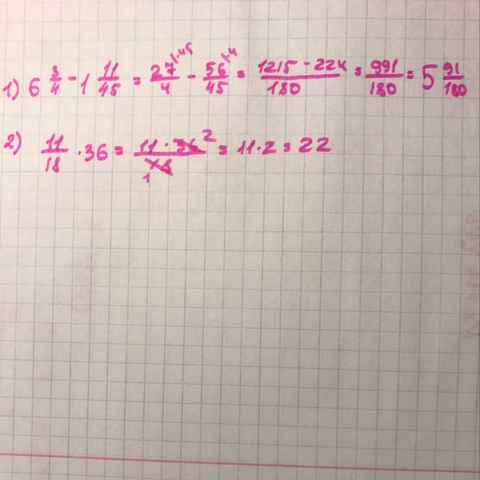 1) 6 3/4 - 1 11/45 = 27/4 |·45 - 56/45 |·4 = 1215 - 224/180 = 991/180 = 5 91/180
2) 11/18 · 36 = 11 · 36 2/18 1 = 11 · 2 = 22